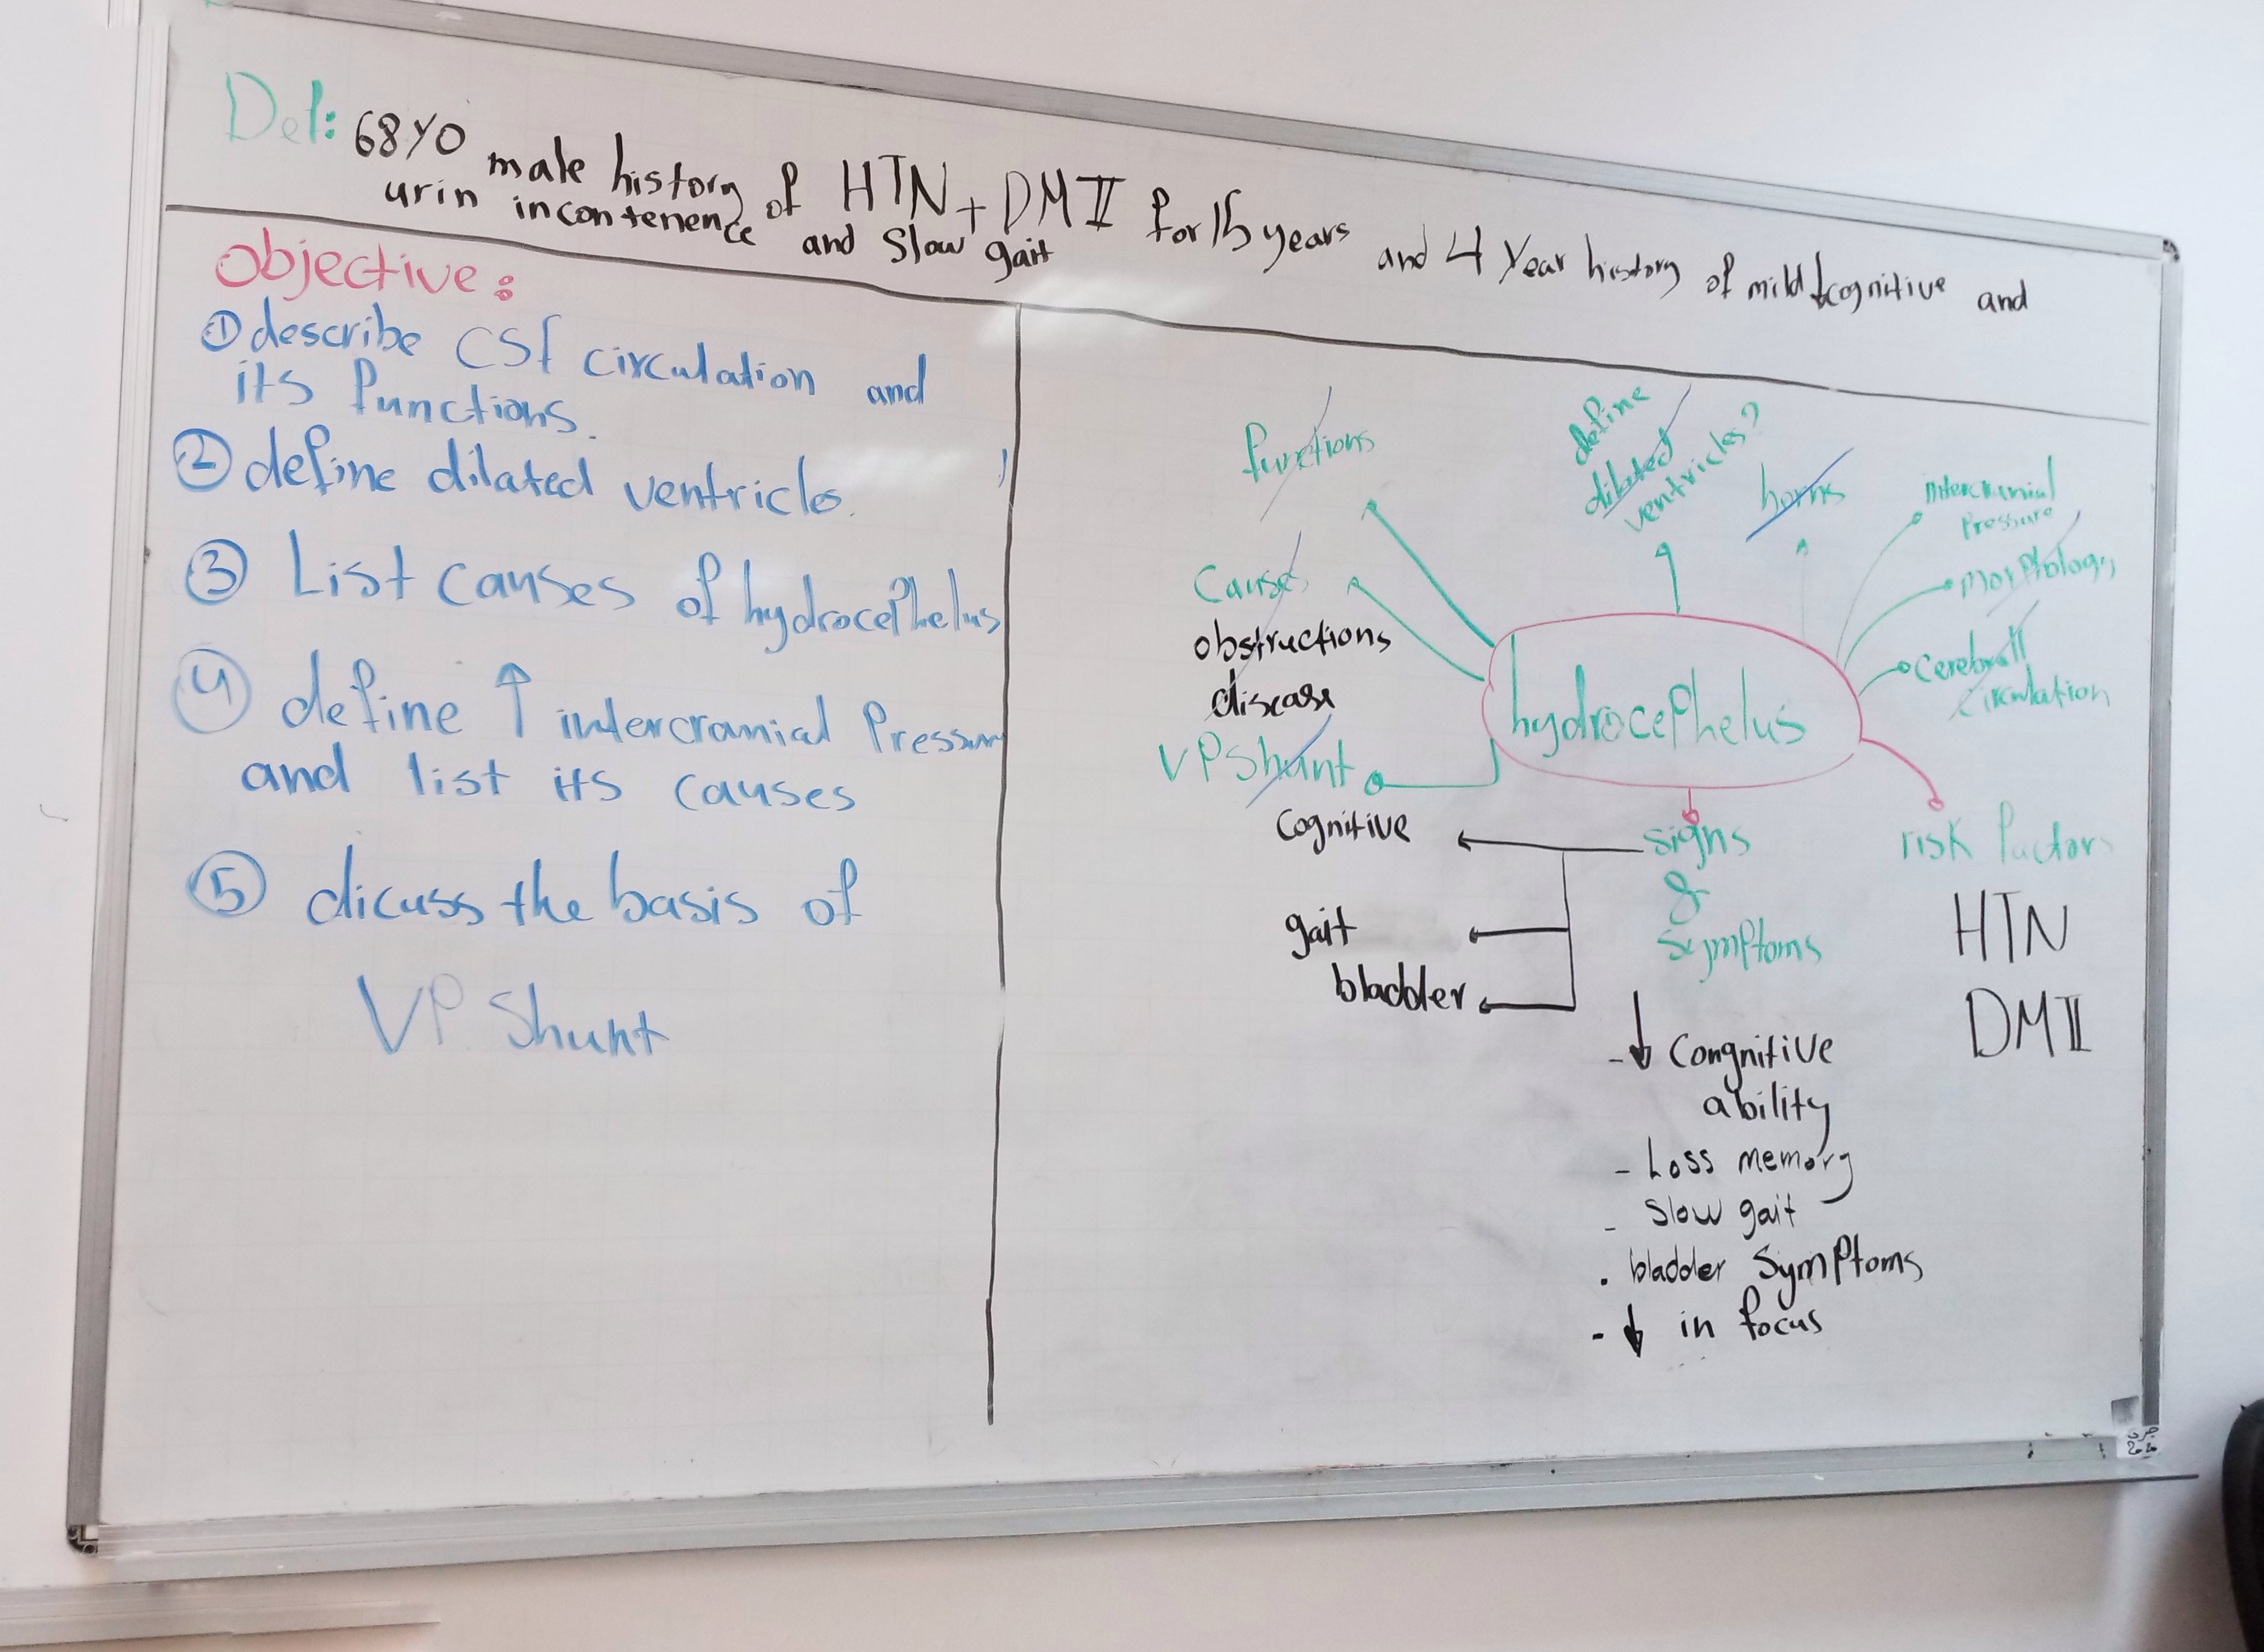 Def: 68 YO male history of HTN + DM II for 15 years and 4 year history of mild ↓cognitive and
urin incontenence and slow gait
objective:
① describe CSF circulation and
its functions.
② define dilated ventricles.
③ List causes of hydrocephelus
④ define ↑ intercranial Pressure
and list its causes
⑤ dicuss the basis of
VP Shunt
functions
define
dilated
ventricles?
horns
intercranial
Pressure
morphology
Cerebrall
circulation
Causes
obstructions
disease
VP Shunt
hydrocephelus
Cognitive
gait
bladder
signs
&
symptoms
risk factors
HTN
DM II
- ↓ Congnitive
ability
- Loss memory
- Slow gait
. bladder symptoms
- ↓ in focus